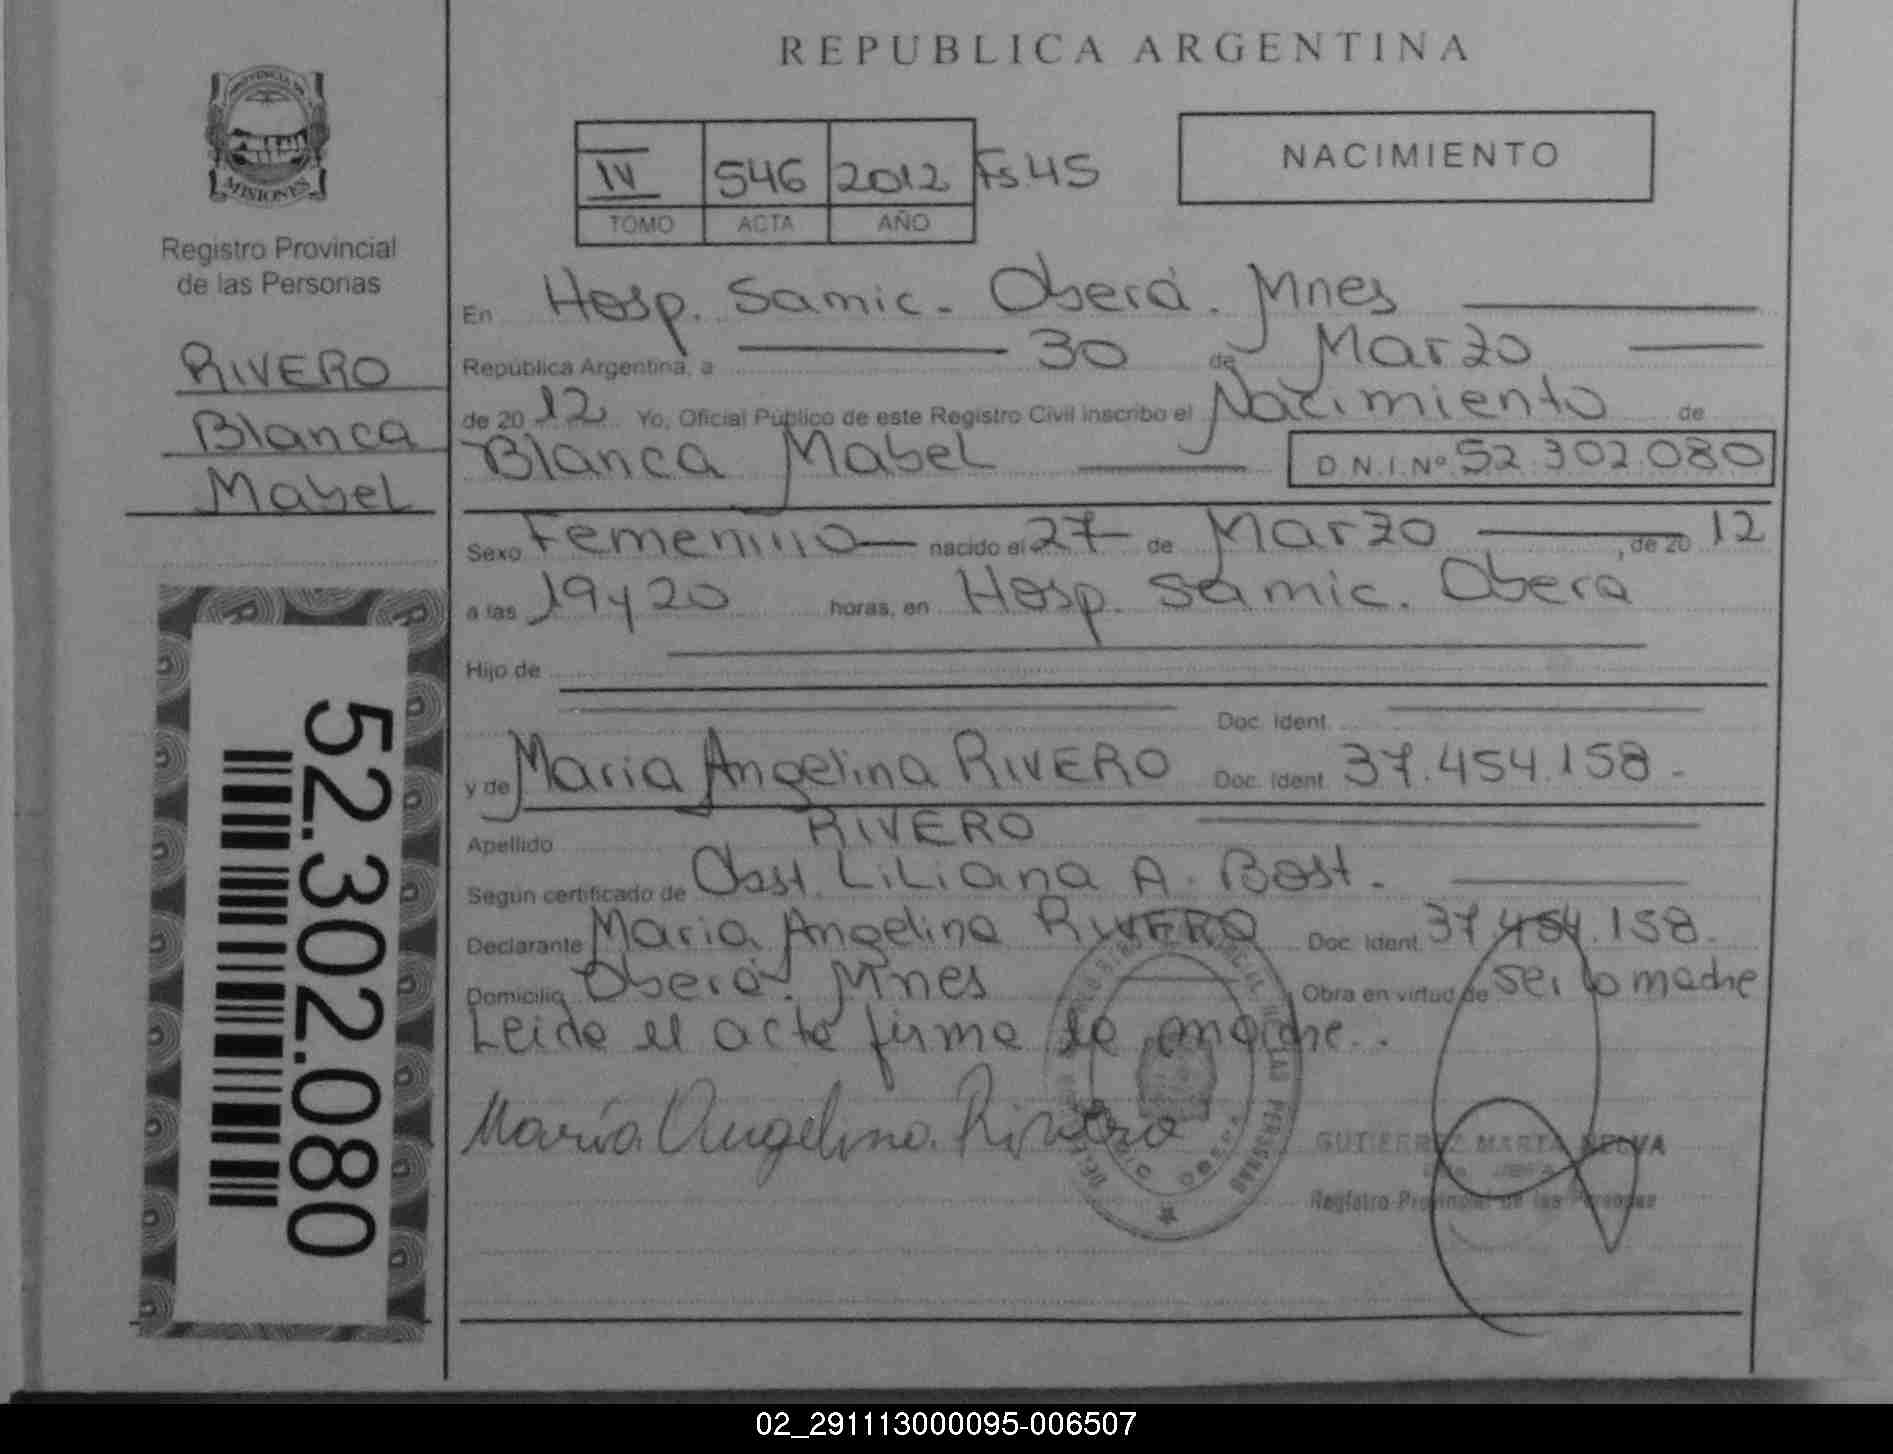 REPUBLICA ARGENTINA
PROVINCIA DE
MISIONES
Registro Provincial
de las Personas
RIVERO
Blanca
Mabel
52.302.080
IV 546 2012 Fs.45
TOMO ACTA AÑO
NACIMIENTO
En Hosp. Samic. Oberá. Mnes
República Argentina, a 30 de Marzo
de 2012 Yo, Oficial Público de este Registro Civil inscribo el Nacimiento de
Blanca Mabel D.N.I.Nº 52.302.080
Sexo Femenino nacido el 27 de Marzo, de 20 12
a las 19 y 20 horas, en Hosp. Samic. Oberá
Hijo de
Doc. Ident.
y de Maria Angelina RIVERO Doc. Ident. 37.454.158.-
Apellido RIVERO
Según certificado de Obst. Liliana A. Bost.
Declarante Maria Angelina RIVERO Doc. Ident. 37.454.158.
Domicilio Oberá. Mnes Obra en virtud de ser la madre
Leida el acta firma la madre..
María Angelina Rivero
GUTIERREZ MARTA NELVA
Registro Provincial de las Personas
02_291113000095-006507